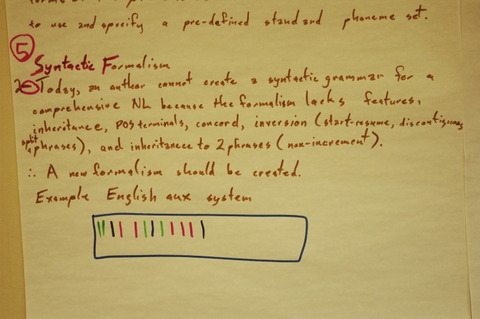 to use and specify a pre-defined standard phoneme set.
5
Syntactic Formalism
Today, an author cannot create a syntactic grammar for a
comprehensive NL because the formalism lacks features,
inheritance, POS terminals, concord, inversion (start-resume, discontiguous,
split phrases), and inheritance to 2 phrases (non-increment).
∴ A new formalism should be created.
Example English aux system